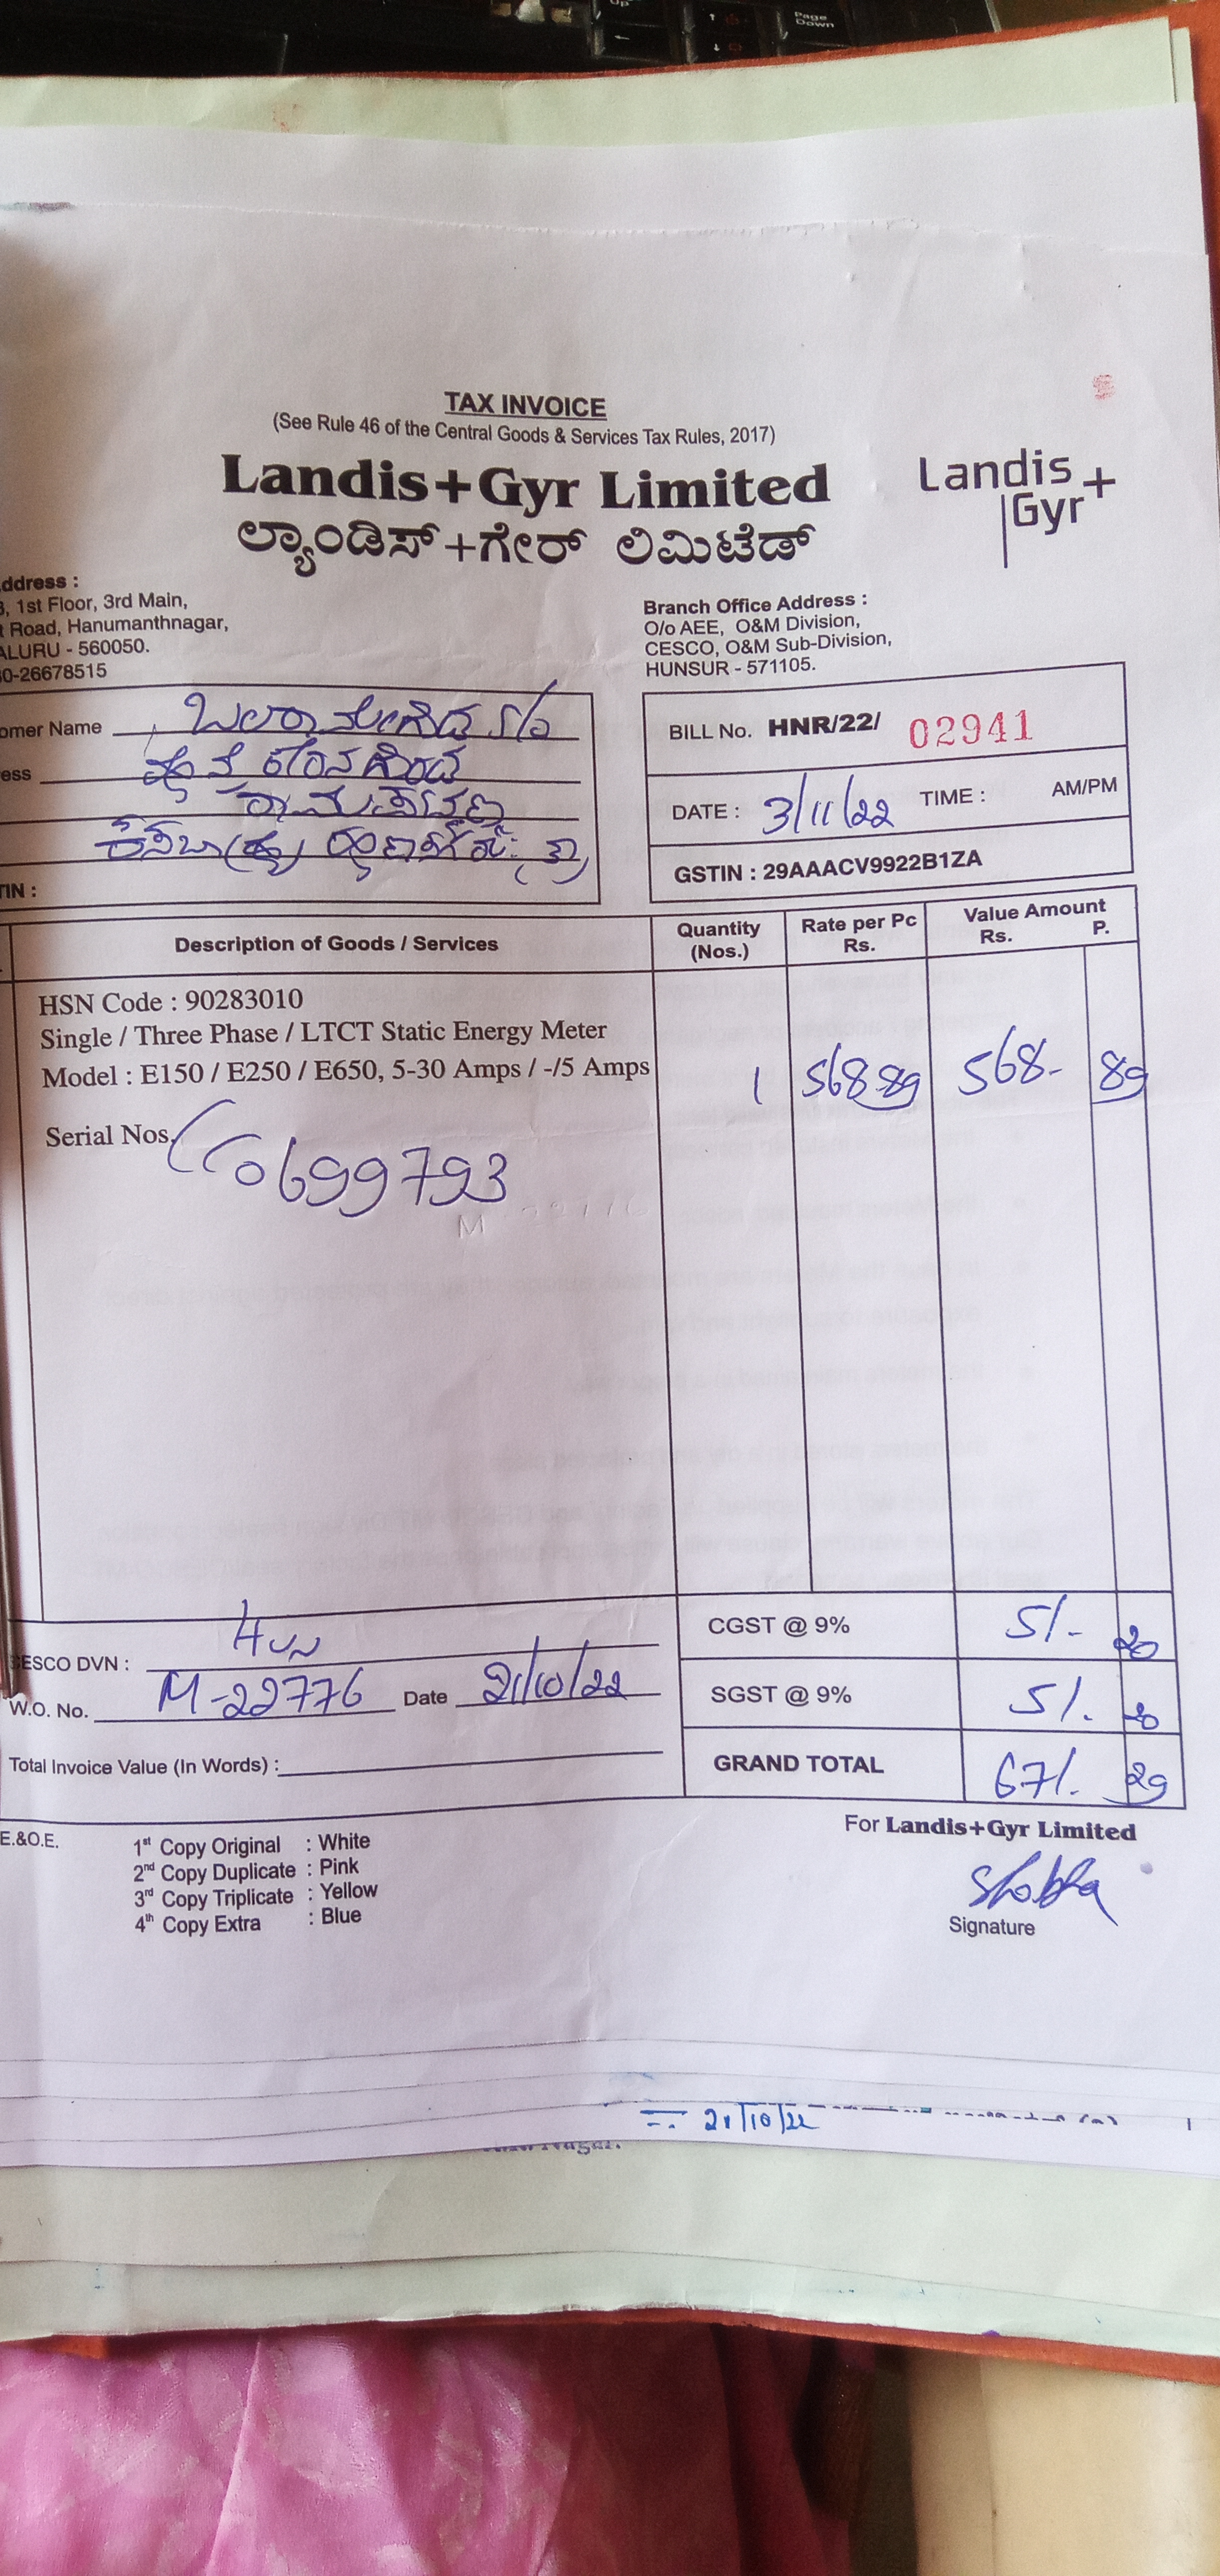 Page Down
TAX INVOICE
(See Rule 46 of the Central Goods & Services Tax Rules, 2017)
Landis+Gyr Limited
ಲ್ಯಾಂಡಿಸ್+ಗೇರ್ ಲಿಮಿಟೆಡ್
Landis+
Gyr
ddress :
, 1st Floor, 3rd Main,
t Road, Hanumanthnagar,
ALURU - 560050.
0-26678515
Branch Office Address :
O/o AEE, O&M Division,
CESCO, O&M Sub-Division,
HUNSUR - 571105.
omer Name S/o
ess
TIN :
BILL No. HNR/22/ 02941
DATE : 3/11/22 TIME : AM/PM
GSTIN : 29AAACV9922B1ZA
Description of Goods / Services Quantity (Nos.) Rate per Pc Rs. Value Amount Rs. P.
HSN Code : 90283010
Single / Three Phase / LTCT Static Energy Meter
Model : E150 / E250 / E650, 5-30 Amps / -/5 Amps 1 568 89 568- 89
Serial Nos. 0699793
CGST @ 9% 51- 20
ESCO DVN :
W.O. No. M-22776 Date 21/10/22
SGST @ 9% 51. 20
Total Invoice Value (In Words) :
GRAND TOTAL 671. 29
E.&O.E.
1st Copy Original : White
2nd Copy Duplicate : Pink
3rd Copy Triplicate : Yellow
4th Copy Extra : Blue
For Landis+Gyr Limited
Shobha
Signature
21/10/22